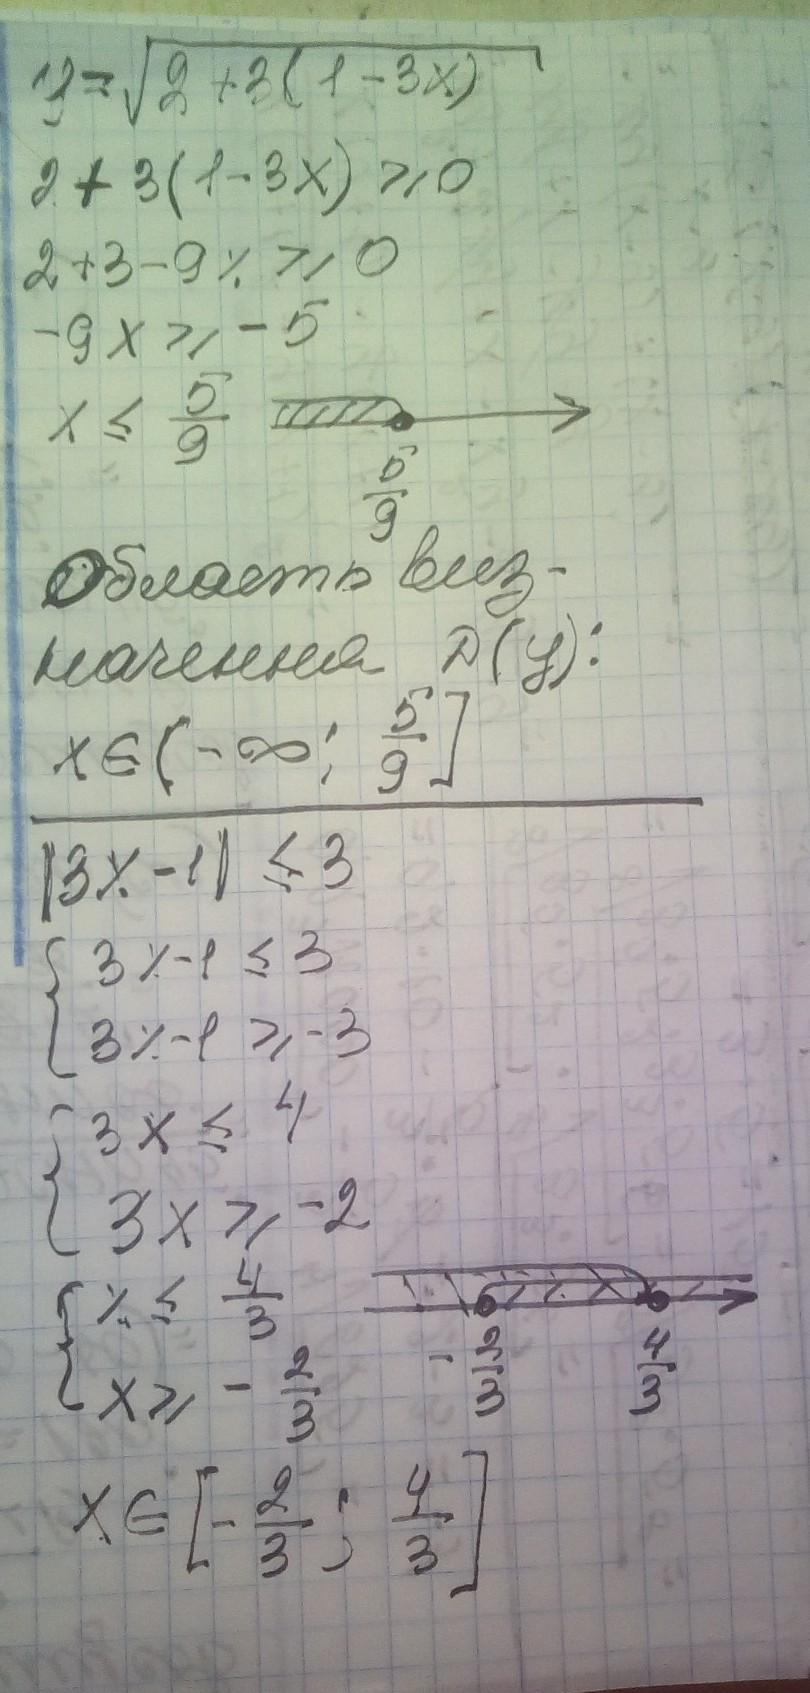 y=√2+3(1-3x)
2+3(1-3x)⩾0
2+3-9x⩾0
-9x⩾-5
x≤5/9
5/9
Область виз-
начення D(y):
x∈(-∞; 5/9]
|3x-1|≤3
{3x-1≤3
3x-1⩾-3
{3x≤4
3x⩾-2
{x≤4/3
x⩾-2/3
-2/3 4/3
x∈[-2/3; 4/3]